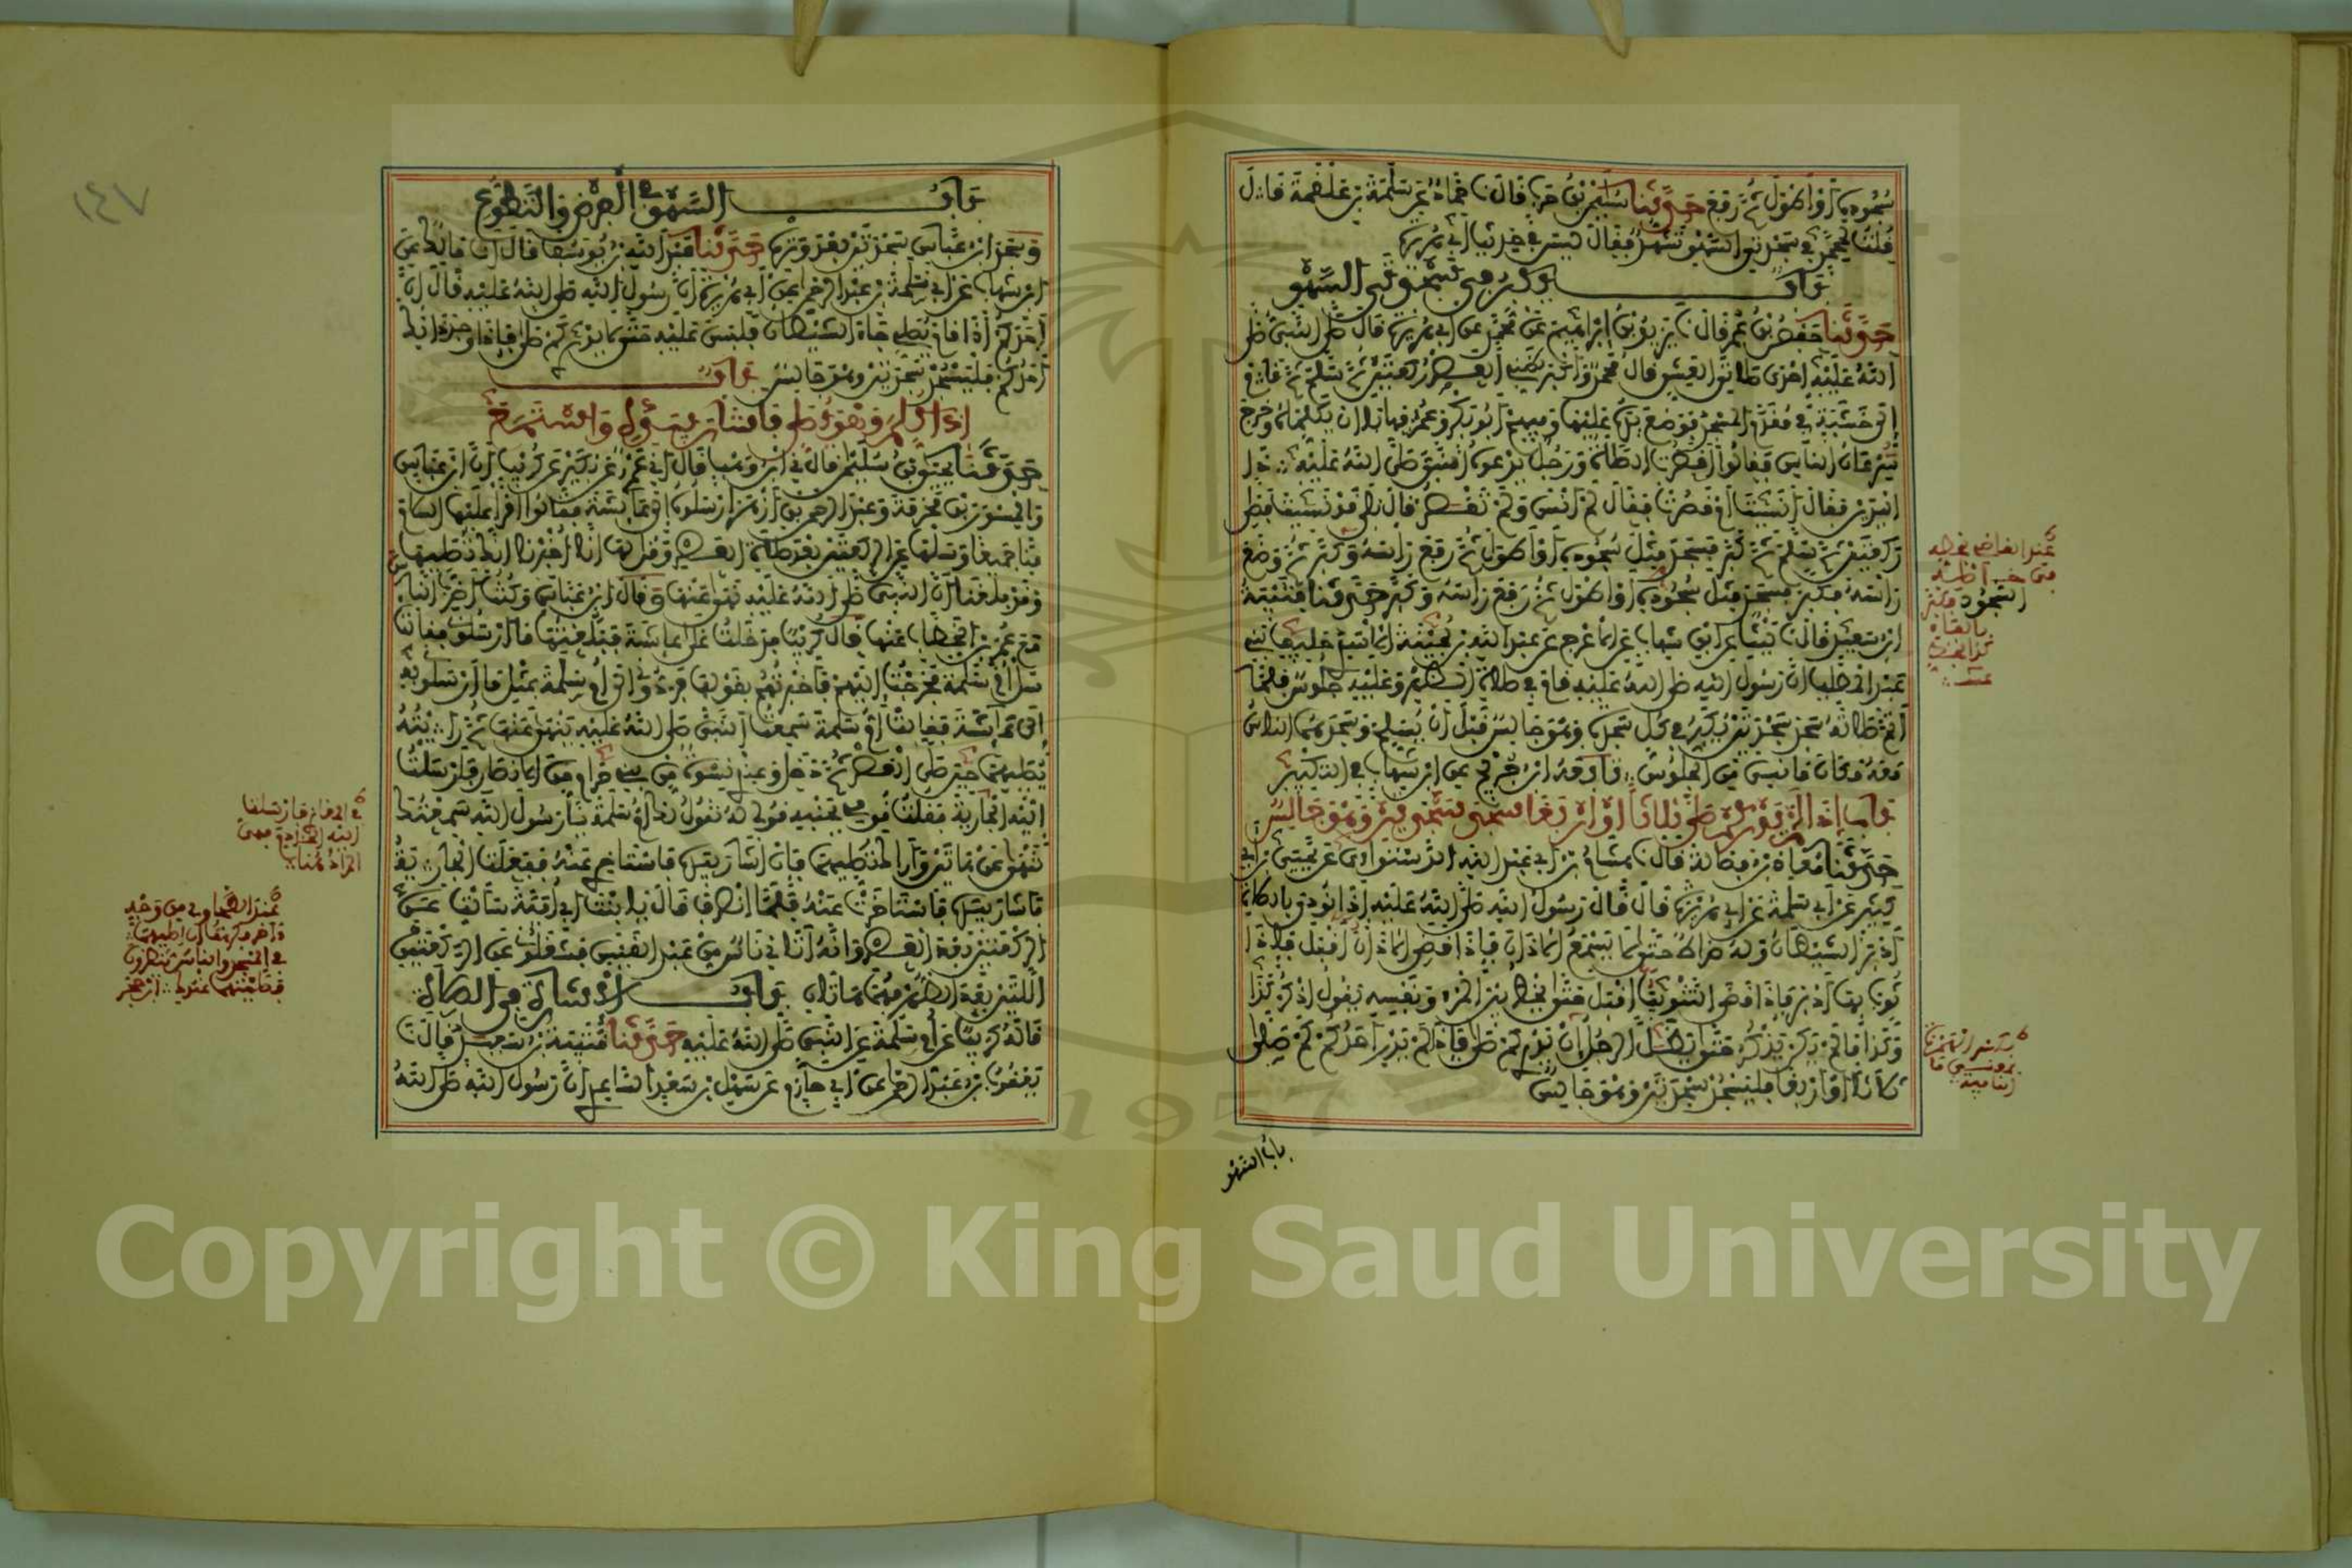 سجوده أو أطول ثم رفع حدثنا سليمن بن حرب قال نا حماد عن سلمة بن علقمة قال
قلت لمحمد في سجدتي السهو تشهد فقال ليس في حديث أبي هريرة
باب يكبر في سجدتي السهو
حدثنا حفص بن عمر قال نا يزيد بن إبراهيم عن محمد عن أبي هريرة قال صلى النبي صلى
الله عليه إحدى صلاتي العشي قال محمد وأكثر ظني العصر ركعتين ثم سلم ثم قام
إلى خشبة في مقدم المسجد فوضع يده عليها وفيهم أبو بكر وعمر فهابا أن يكلماه وخرج
سرعان الناس فقالوا أقصرت الصلاة ورجل يدعوه النبي صلى الله عليه ذو
اليدين فقال أنسيت أم قصرت فقال لم أنس ولم تقصر قال بلى قد نسيت فصلى
ركعتين ثم سلم ثم كبر فسجد مثل سجوده أو أطول ثم رفع رأسه وكبر ثم وضع
رأسه فكبر فسجد مثل سجوده أو أطول ثم رفع رأسه وكبر حدثنا قتيبة
ابن سعيد قال نا ليث عن ابن شهاب عن الأعرج عن عبد الله بن بحينة الأسدي حليف بني
عبد المطلب أن رسول الله صلى الله عليه قام في صلاة الظهر وعليه جلوس فلما
أتم صلاته سجد سجدتين يكبر في كل سجدة وهو جالس قبل أن يسلم وسجدهما الناس
معه مكان ما نسي من الجلوس تابعه ابن جريج عن ابن شهاب في التكبير
باب إذا لم يدر كم صلى ثلاثا أو أربعا سجد سجدتين وهو جالس
حدثنا معاذ بن فضالة قال نا هشام بن أبي عبد الله الدستوائي عن يحيى بن أبي
كثير عن أبي سلمة عن أبي هريرة قال قال رسول الله صلى الله عليه إذا نودي بالصلاة
أدبر الشيطان وله ضراط حتى لا يسمع الأذان فإذا قضي الأذان أقبل فإذا
ثوب بها أدبر فإذا قضي التثويب أقبل حتى يخطر بين المرء ونفسه يقول اذكر كذا
وكذا ما لم يكن يذكر حتى يظل الرجل إن يدري كم صلى فإذا لم يدر أحدكم كم صلى
ثلاثا أو أربعا فليسجد سجدتين وهو جالس
باب السهو
باب السهو في الفرض والتطوع
وسجد ابن عباس سجدتين بعد وتره حدثنا عبد الله بن يوسف قال أنا مالك عن
ابن شهاب عن أبي سلمة بن عبد الرحمن عن أبي هريرة أن رسول الله صلى الله عليه قال إن
أحدكم إذا قام يصلي جاء الشيطان فلبس عليه حتى لا يدري كم صلى فإذا وجد ذلك
أحدكم فليسجد سجدتين وهو جالس باب
إذا كلم وهو يصلي فأشار بيده واستمع
حدثنا يحيى بن سليمن قال ني ابن وهب قال ني عمرو عن بكير عن كريب أن ابن عباس
والمسور بن مخرمة وعبد الرحمن بن أزهر أرسلوه إلى عائشة فقالوا اقرأ عليها السلام
منا جميعا وسلها عن الركعتين بعد صلاة العصر وقل لها إنا أخبرنا أنك تصليهما
وقد بلغنا أن النبي صلى الله عليه نهى عنها وقال ابن عباس وكنت أضرب الناس
مع عمر بن الخطاب عنها قال كريب فدخلت على عائشة فبلغتها ما أرسلوني فقالت
سل أم سلمة فخرجت إليهم فأخبرتهم بقولها فردوني إلى أم سلمة بمثل ما أرسلوني به
إلى عائشة فقالت أم سلمة سمعت النبي صلى الله عليه ينهى عنها ثم رأيته
يصليهما حين صلى العصر ثم دخل وعندي نسوة من بني حرام من الأنصار فأرسلت
إليه الجارية فقلت قومي بجنبه قولي له تقول لك أم سلمة يا رسول الله سمعتك
تنهى عن هاتين وأراك تصليهما فإن أشار بيده فاستأخري عنه ففعلت الجارية
فأشار بيده فاستأخرت عنه فلما انصرف قال يا بنت أبي أمية سألت عن
الركعتين بعد العصر وإنه أتاني ناس من عبد القيس فشغلوني عن الركعتين
اللتين بعد الظهر فهما هاتان باب الإشارة في الصلاة
قاله كريب عن أم سلمة عن النبي صلى الله عليه حدثنا قتيبة بن سعيد قال نا
يعقوب بن عبد الرحمن عن أبي حازم عن سهل بن سعد الساعدي أن رسول الله صلى الله
١٤٧
Copyright © King Saud University
1957